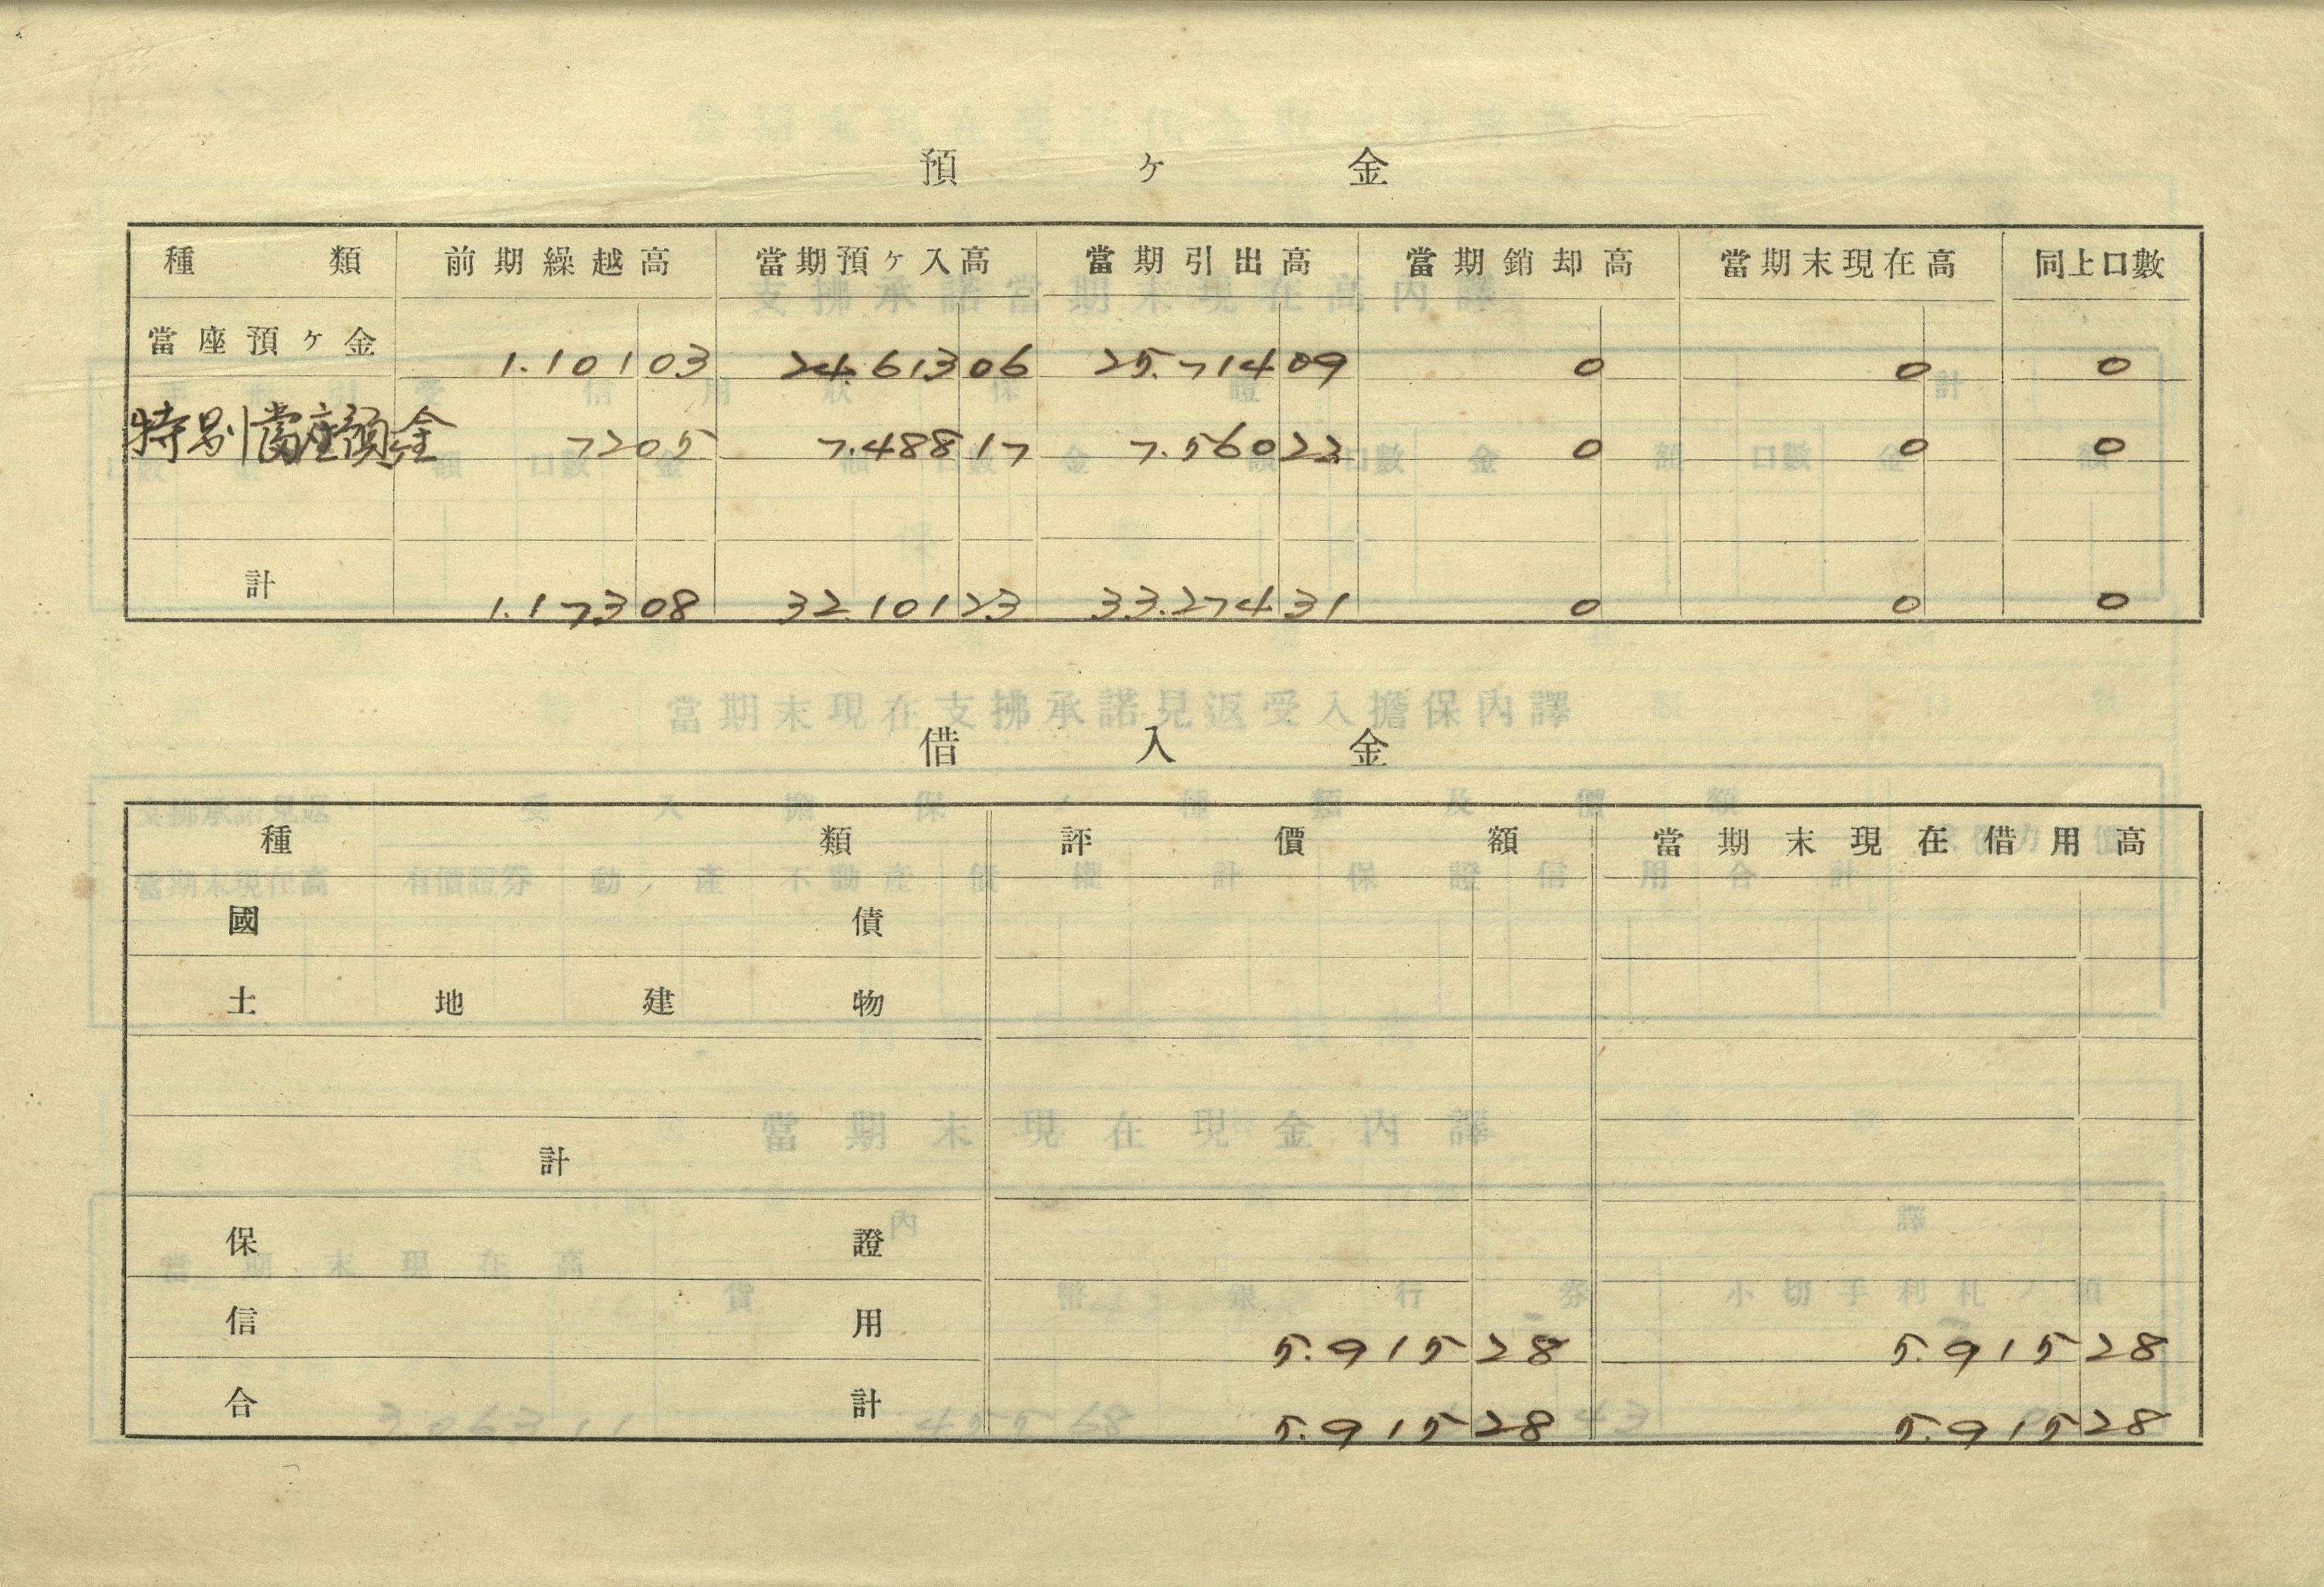 預ヶ金
種類 前期繰越高 當期預ヶ入高 當期引出高 當期銷却高 當期末現在高 同上口數
當座預ヶ金 1.101 03 24.613 06 25.714 09 0 0 0
特別當座預ヶ金 72 05 7.488 17 7.560 22 0 0 0
計 1.173 08 32.101 23 33.274 31 0 0 0
借入金
種類 評價額 當期末現在借用高
國債
土地建物
計
保證
信用 5.915 28 5.915 28
合計 5.915 28 5.915 28